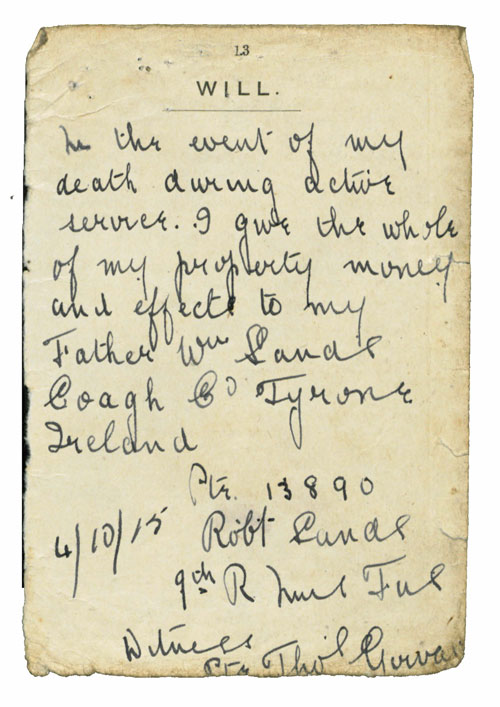 13
WILL.
In the event of my
death during active
service. I give the whole
of my property money
and effects to my
Father Wm Sands
Coagh Co Tyrone
Ireland
Pte. 13890
4/10/15 Robt Sands
9th R Innis Fus
Witness
Pte Thos